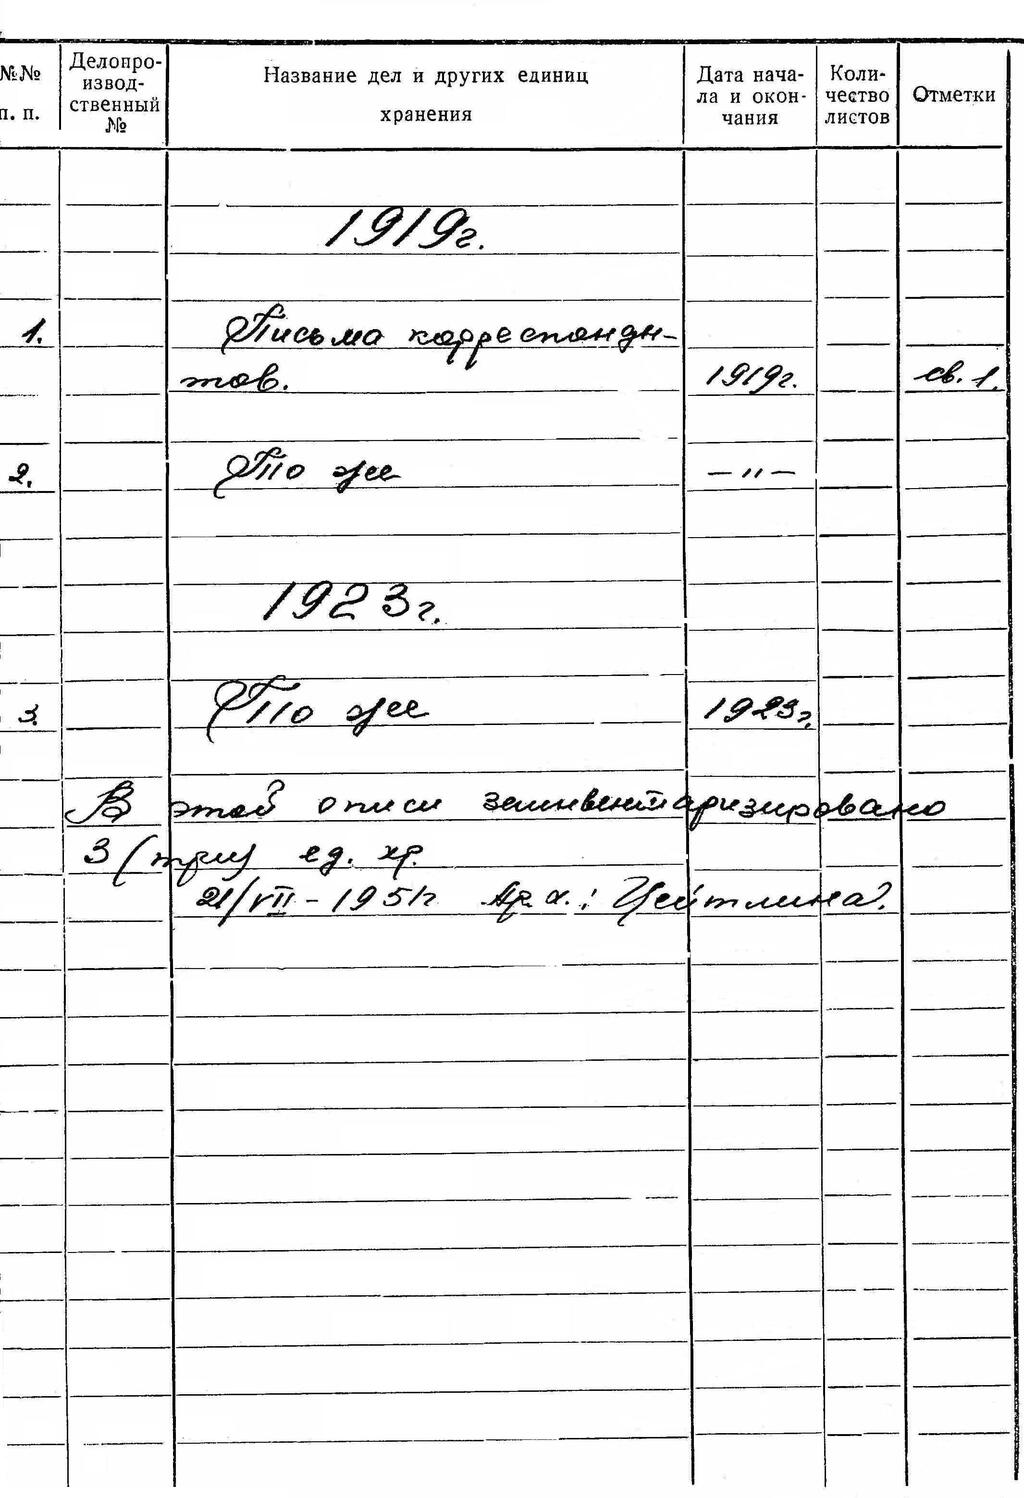 №№ п. п.
Делопроизвод-
ственный
№
Название дел и других единиц
хранения
Дата нача-
ла и окон-
чания
Коли-
чество
листов
Отметки
1919г.
1. Письма корреспонден-
тов. 1919г. св. 1.
2. То же —〃—
1923г.
3. То же 1923г.
В этой описи заинвентаризировано
3 (три) ед. хр.
21/VII-1951г. Арх.: Цейтлина.